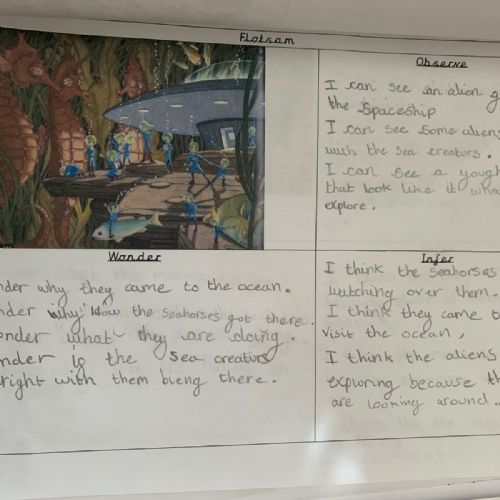 Flotsam
Observe
I can see an alien g
the spaceship
I can see some aliens
with the sea creators.
I can see a yought
that look like it wha
explore.
Wonder
nder why they came to the ocean.
nder why How the seahorses got there.
onder what they are doing.
nder is the sea creaturs
right with them bieng there.
Infer
I think the seahorses
watching over them.
I think they came to
visit the ocean,
I think the aliens
exploring because th
are looking around.